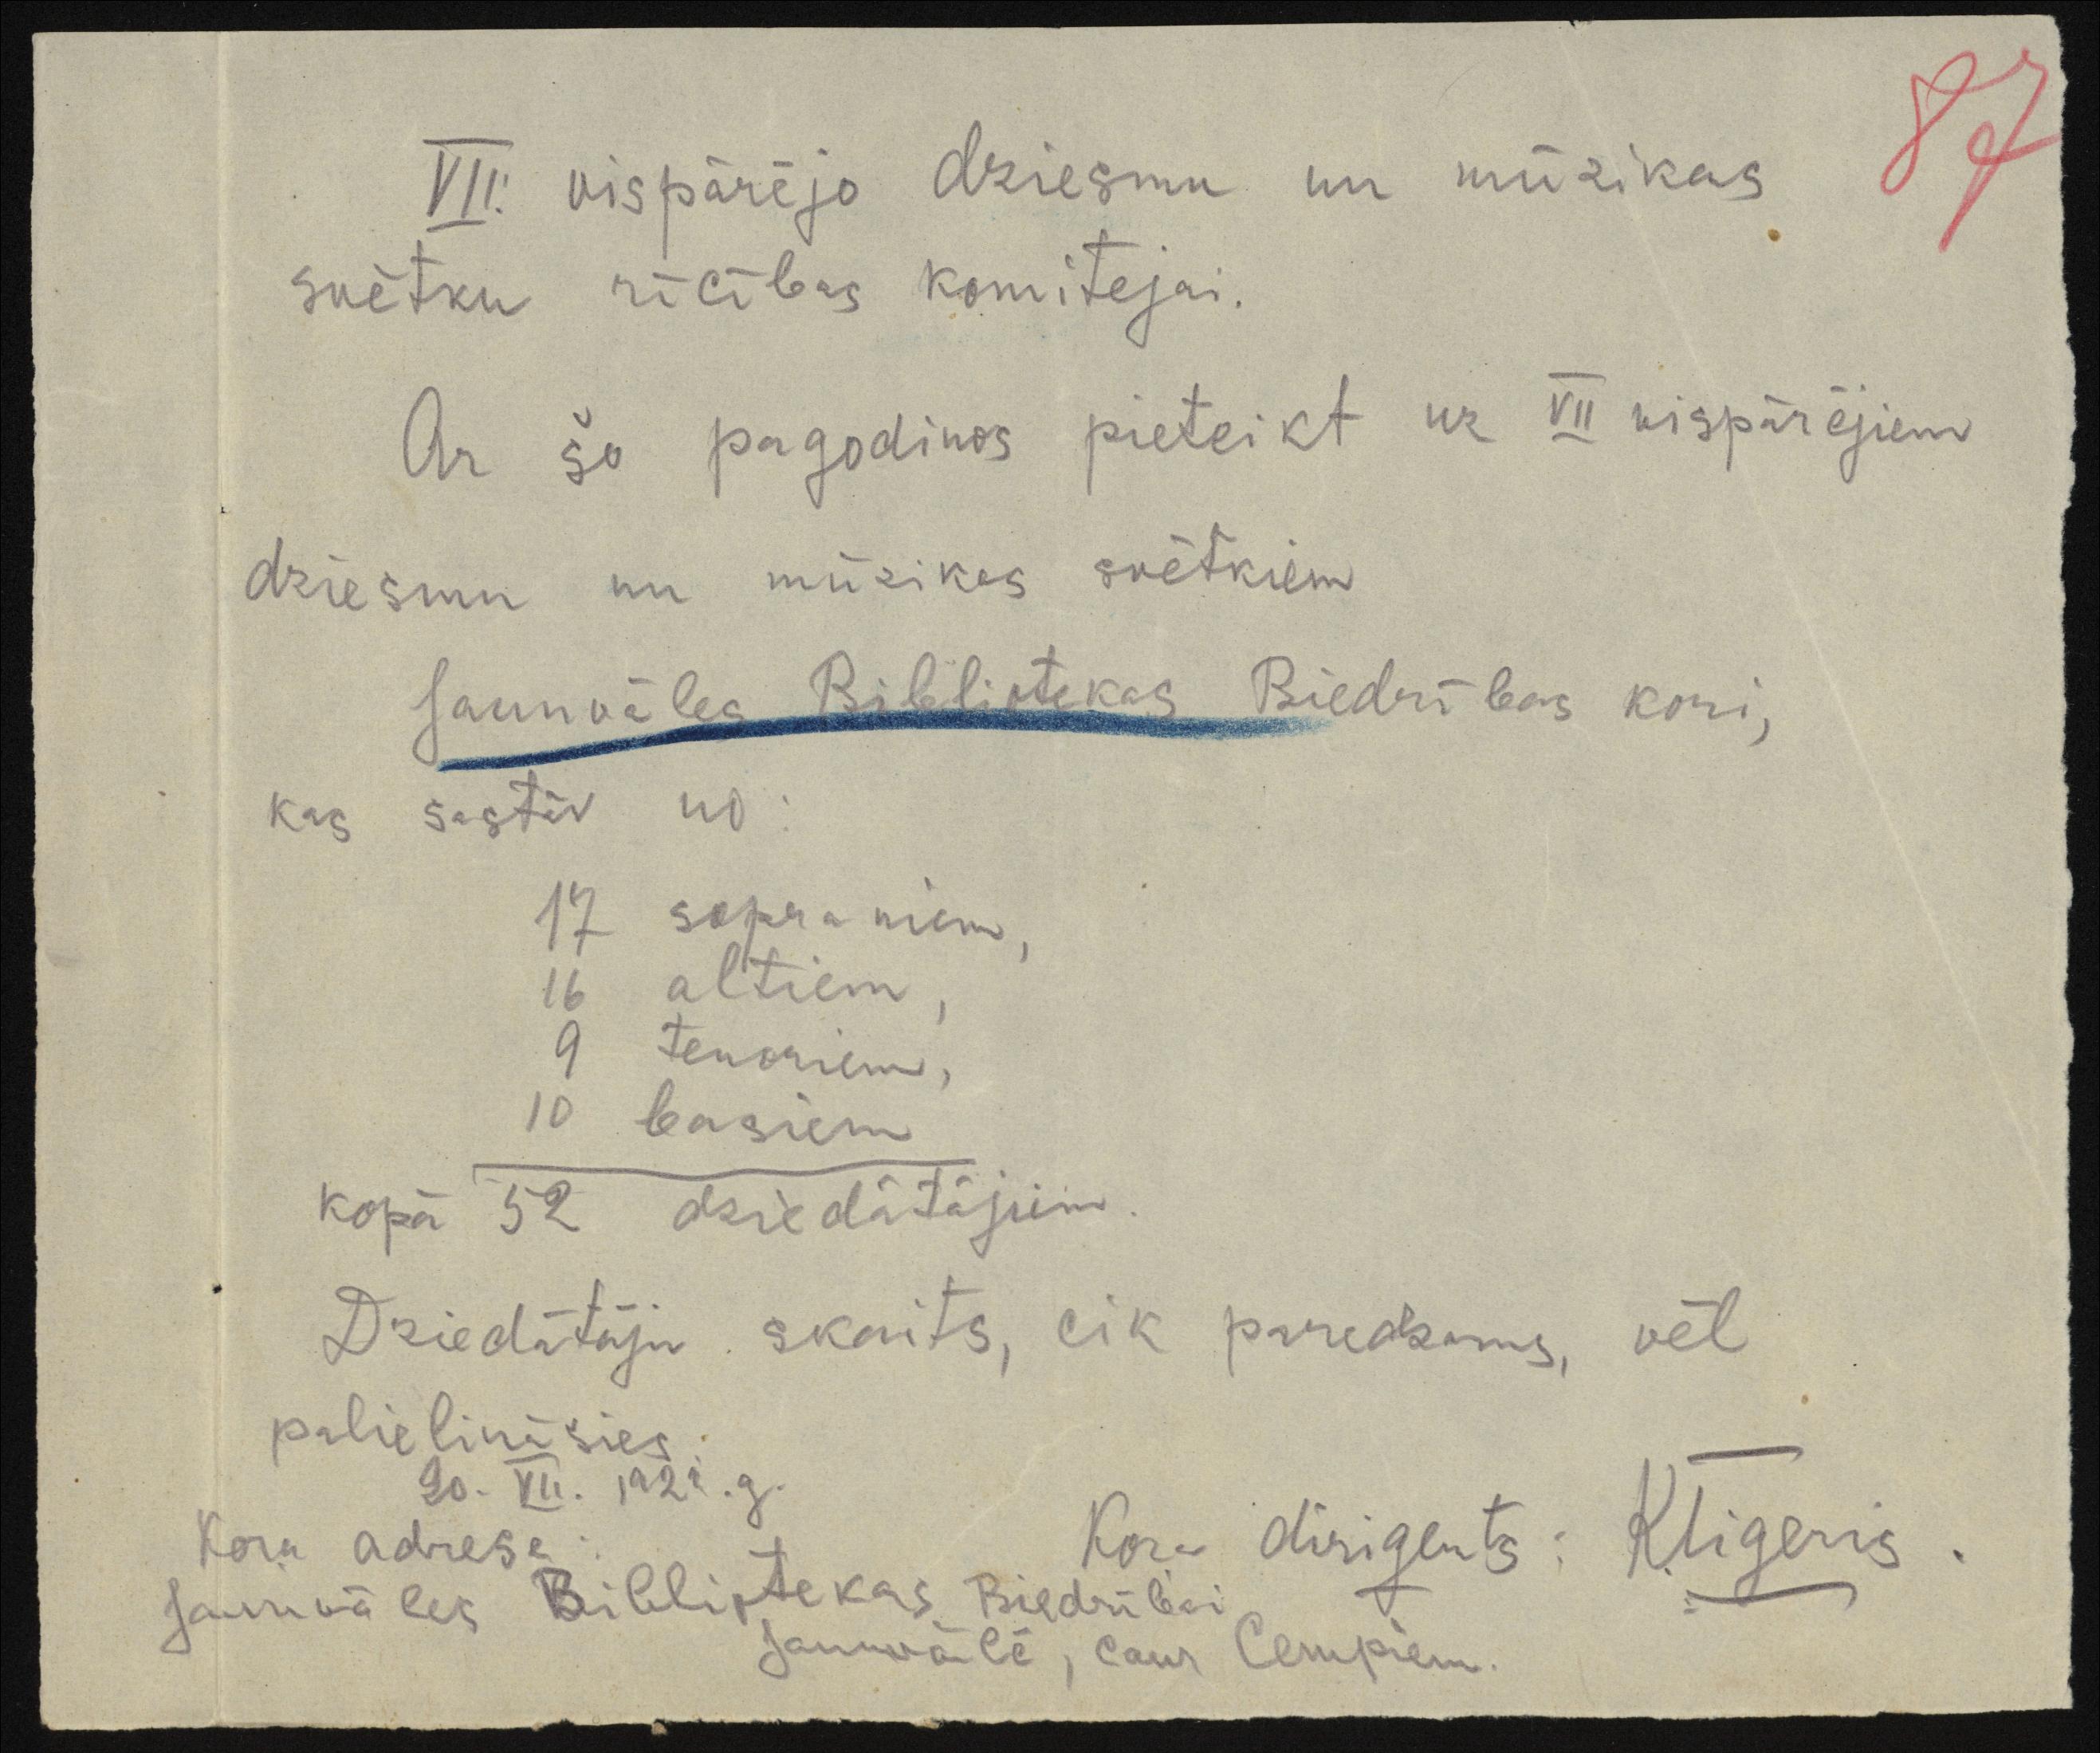 87
VII. vispārējo dziesmu un mūzikas
svētku rīcības komitejai.
Ar šo pagodinos pieteikt uz VII vispārējiem
dziesmu un mūzikas svētkiem
Jaunvāles Bibliotekas Biedrības kori,
kas sastāv no:
17 sopraniem,
16 altiem,
9 tenoriem,
10 basiem
kopā 52 dziedātājiem.
Dziedātāju skaits, cik paredzams, vēl
palielināsies.
20. VII. g.
Kora adrese:
Kora dirigents: Kligeris.
Jaunvāles Bibliotekas Biedrībai
Jaunvālē, caur Cempiem.